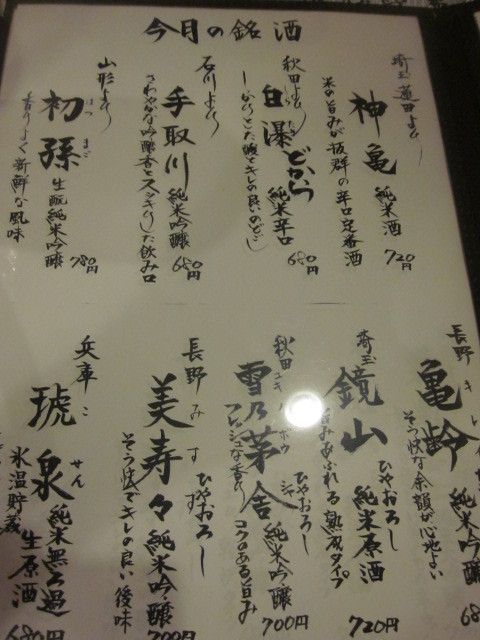 今月の銘酒
埼玉蓮田より
神亀 純米酒 720円
米の旨みが抜群の辛口定番酒
秋田より
白瀑 どからつ 純米辛口 680円
しっかりとした味とキレの良いのどごし
石川より
手取川 純米吟醸 680円
さわやかな吟醸香とスッキリした飲み口
山形より
初孫 はつ まご 生酛純米吟醸 780円
香りよく新鮮な風味
長野
亀齢 キレイ ひやおろし 純米吟醸 68
そう快な余韻が心地よい
埼玉
鏡山 ひやおろし 純米原酒 720円
旨みあふれる熟成タイプ
秋田
雪乃茅舎 ユキノボウシャ ひやおろし 純米吟醸 700円
フレッシュな香り コクのある旨み
長野
美寿々 みすず ひやおろし 純米吟醸 700円
そう快でキレの良い後味
兵庫
琥泉 こ せん 純米無ろ過 生原酒 680円
氷温貯蔵